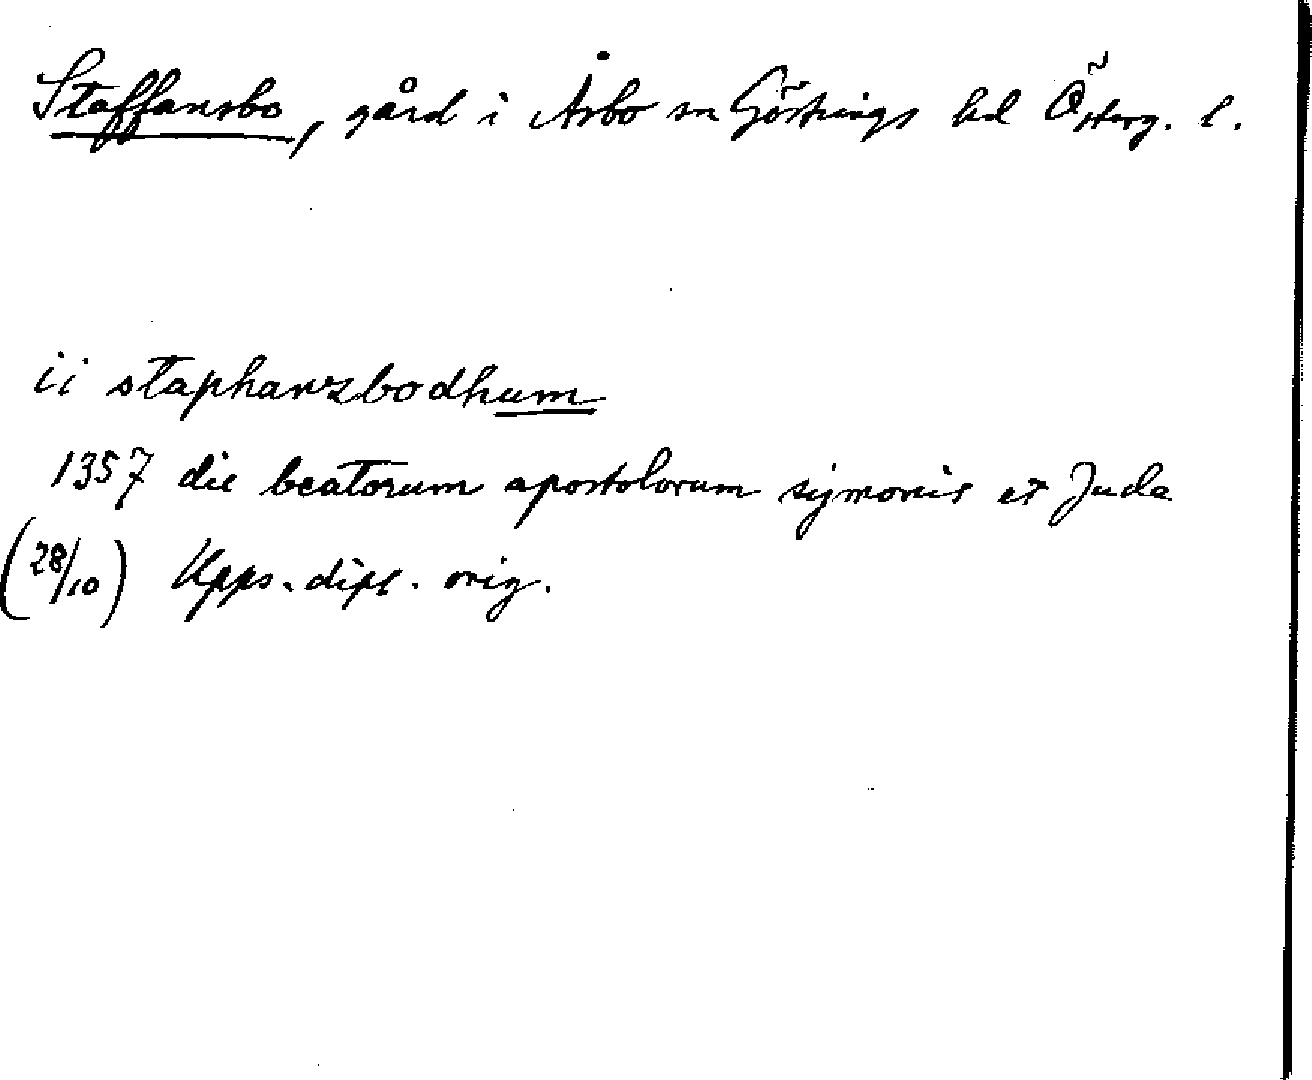 Staffansbo, gård i Åsbo sn Göstrings hd Österg. l.
ii staphanzbodhum
1357 die beatorum apostolorum symonis et Jude
(28/10) Upps. dipl. orig.